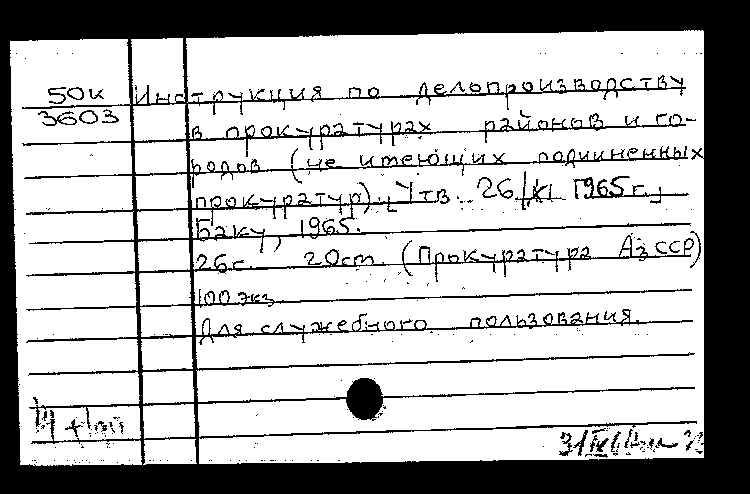 50к Инструкция по делопроизводству
3603
в прокуратурах районов и го-
родов (не имеющих подчиненных
прокуратур). Утв. 26/XI 1965г.
Баку, 1965.
26с. 20см. (Прокуратура АзССР)
100 экз.
Для служебного пользования.